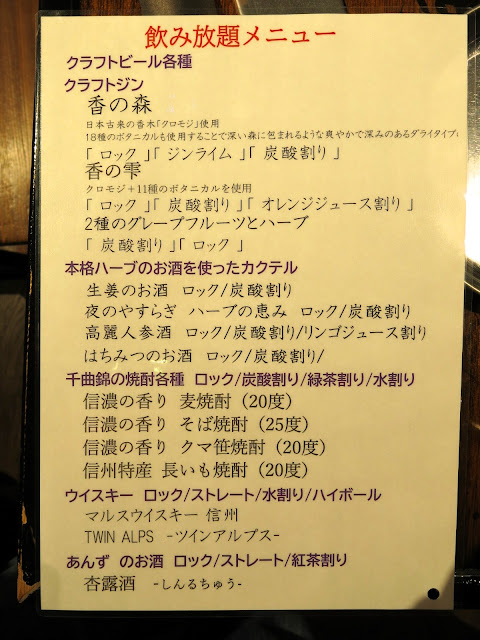 飲み放題メニュー
クラフトビール各種
クラフトジン
香の森
日本古来の香木「クロモジ」使用
18種のボタニカルも使用することで深い森に包まれるような爽やかで深みのあるダライタイプに
「 ロック 」「 ジンライム 」「 炭酸割り 」
香の雫
クロモジ+11種のボタニカルを使用
「 ロック 」「 炭酸割り 」「 オレンジジュース割り 」
2種のグレープフルーツとハーブ
「 炭酸割り 」「 ロック 」
本格ハーブのお酒を使ったカクテル
生姜のお酒 ロック/炭酸割り
夜のやすらぎ ハーブの恵み ロック/炭酸割り
高麗人参酒 ロック/炭酸割り/リンゴジュース割り
はちみつのお酒 ロック/炭酸割り/
千曲錦の焼酎各種 ロック/炭酸割り/緑茶割り/水割り
信濃の香り 麦焼酎（20度）
信濃の香り そば焼酎（25度）
信濃の香り クマ笹焼酎（20度）
信州特産 長いも焼酎（20度）
ウイスキー ロック/ストレート/水割り/ハイボール
マルスウイスキー 信州
TWIN ALPS -ツインアルプス-
あんず のお酒 ロック/ストレート/紅茶割り
杏露酒 -しんるちゅう-